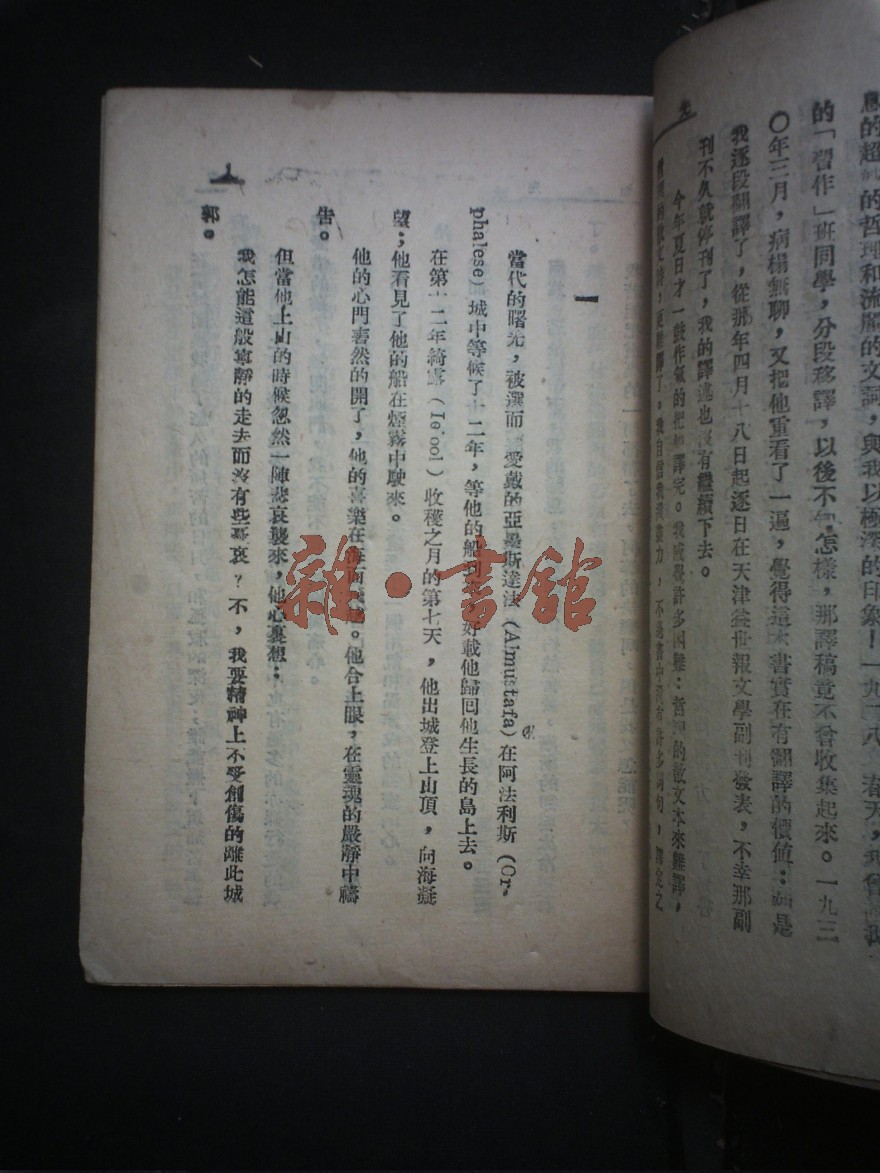 的超
的哲理和流麗的文詞,與我以極深的印象!一九二八 春天,我曾
的「習作」班同學,分段移譯,以後不知怎樣,那譯稿竟不曾收集起來。一九三
〇年三月,病榻無聊,又把他重看了一遍,覺得這本書實在有翻譯的價值:於是
我逐段翻譯了,從那年四月十八日起逐日在天津益世報文學副刊發表,不幸那副
刊不久就停刊了,我的譯述也沒有繼續下去。
今年夏日才一鼓作氣的把他譯完。我感覺許多困難:哲理的散文本來難譯,
的散文詩,更難譯了。我自信我還盡力,不過書中還有許多詞句,譯定之
先
一
當代的曙光,被選而 愛戴的亞墨斯達法(Almustafa)在阿法利斯(Or-
phalese)城中等候了十二年,等他的船到 好載他歸回他生長的島上去。
在第十二年綺露(Ie'ool)收穫之月的第七天,他出城登上山頂,向海凝
望;他看見了他的船在煙霧中駛來。
他的心門砉然的開了,他的喜樂在海面 。他合上眼,在靈魂的嚴靜中禱
告。
但當他上山的時候忽然一陣悲哀襲來,他心裏想:
我怎能這般寧靜的走去而沒有些哀?不,我要精神上不受創傷的離此城
郭。
雜·書館